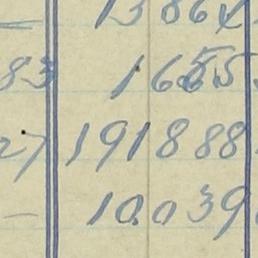 — 13864
83 16655
27 191888
— 10039